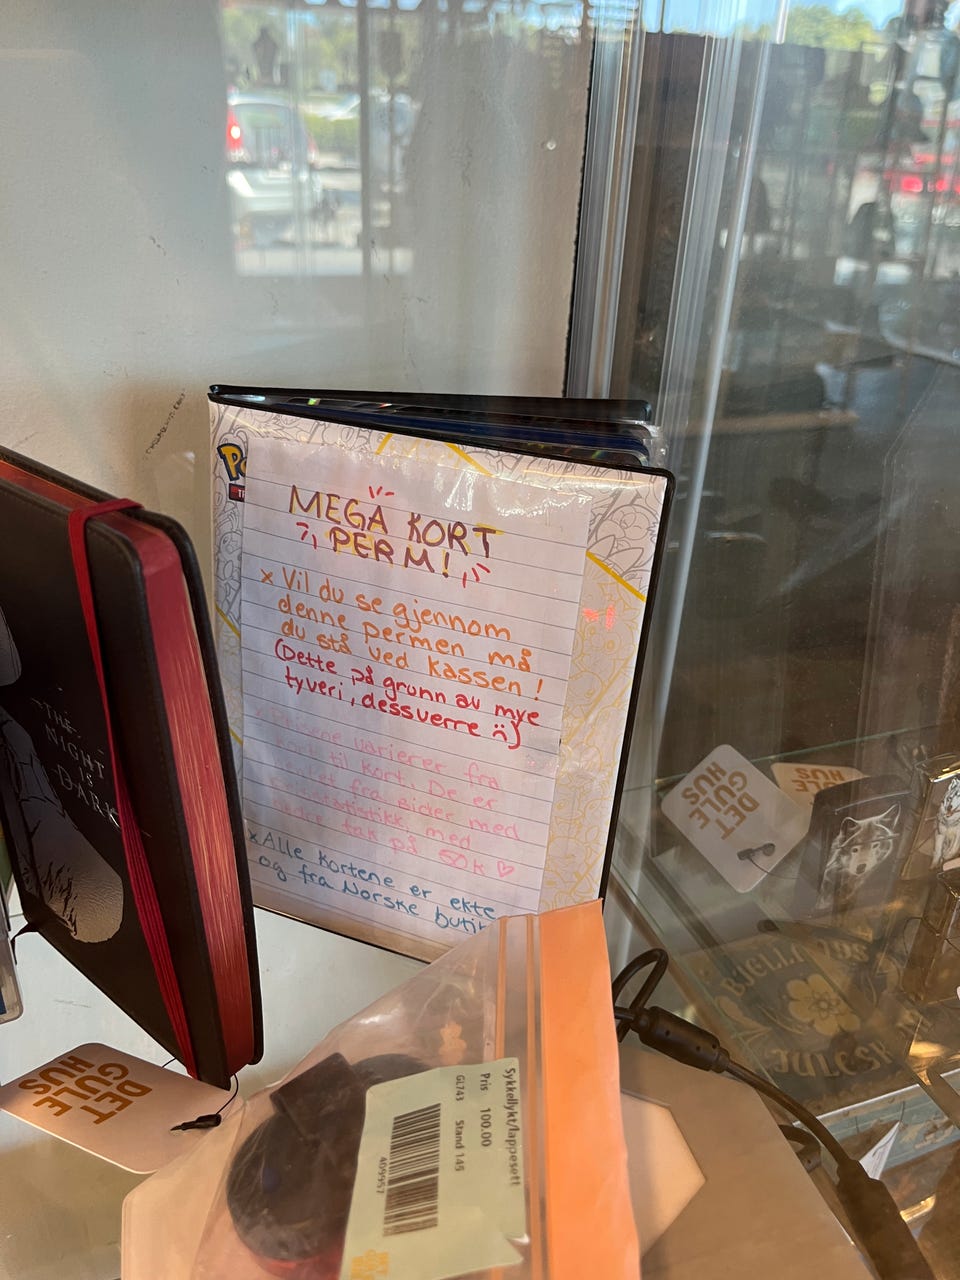 MEGA KORT
PERM!
x Vil du se gjennom
denne permen må
du stå ved kassen!
(Dette på grunn av mye
tyveri, dessverre
x Prisene varierer fra
kort til kort. De er
hentet fra sider med
med
tak på 50k ♡
x Alle kortene er ekte
og fra Norske
THE
NIGHT
IS
DARK
DET
GULE
HUS
DET
GULE
HUS
HUS
Sykkellykt/lappesett
Pris 100.00
GL743 Stand 145
409957